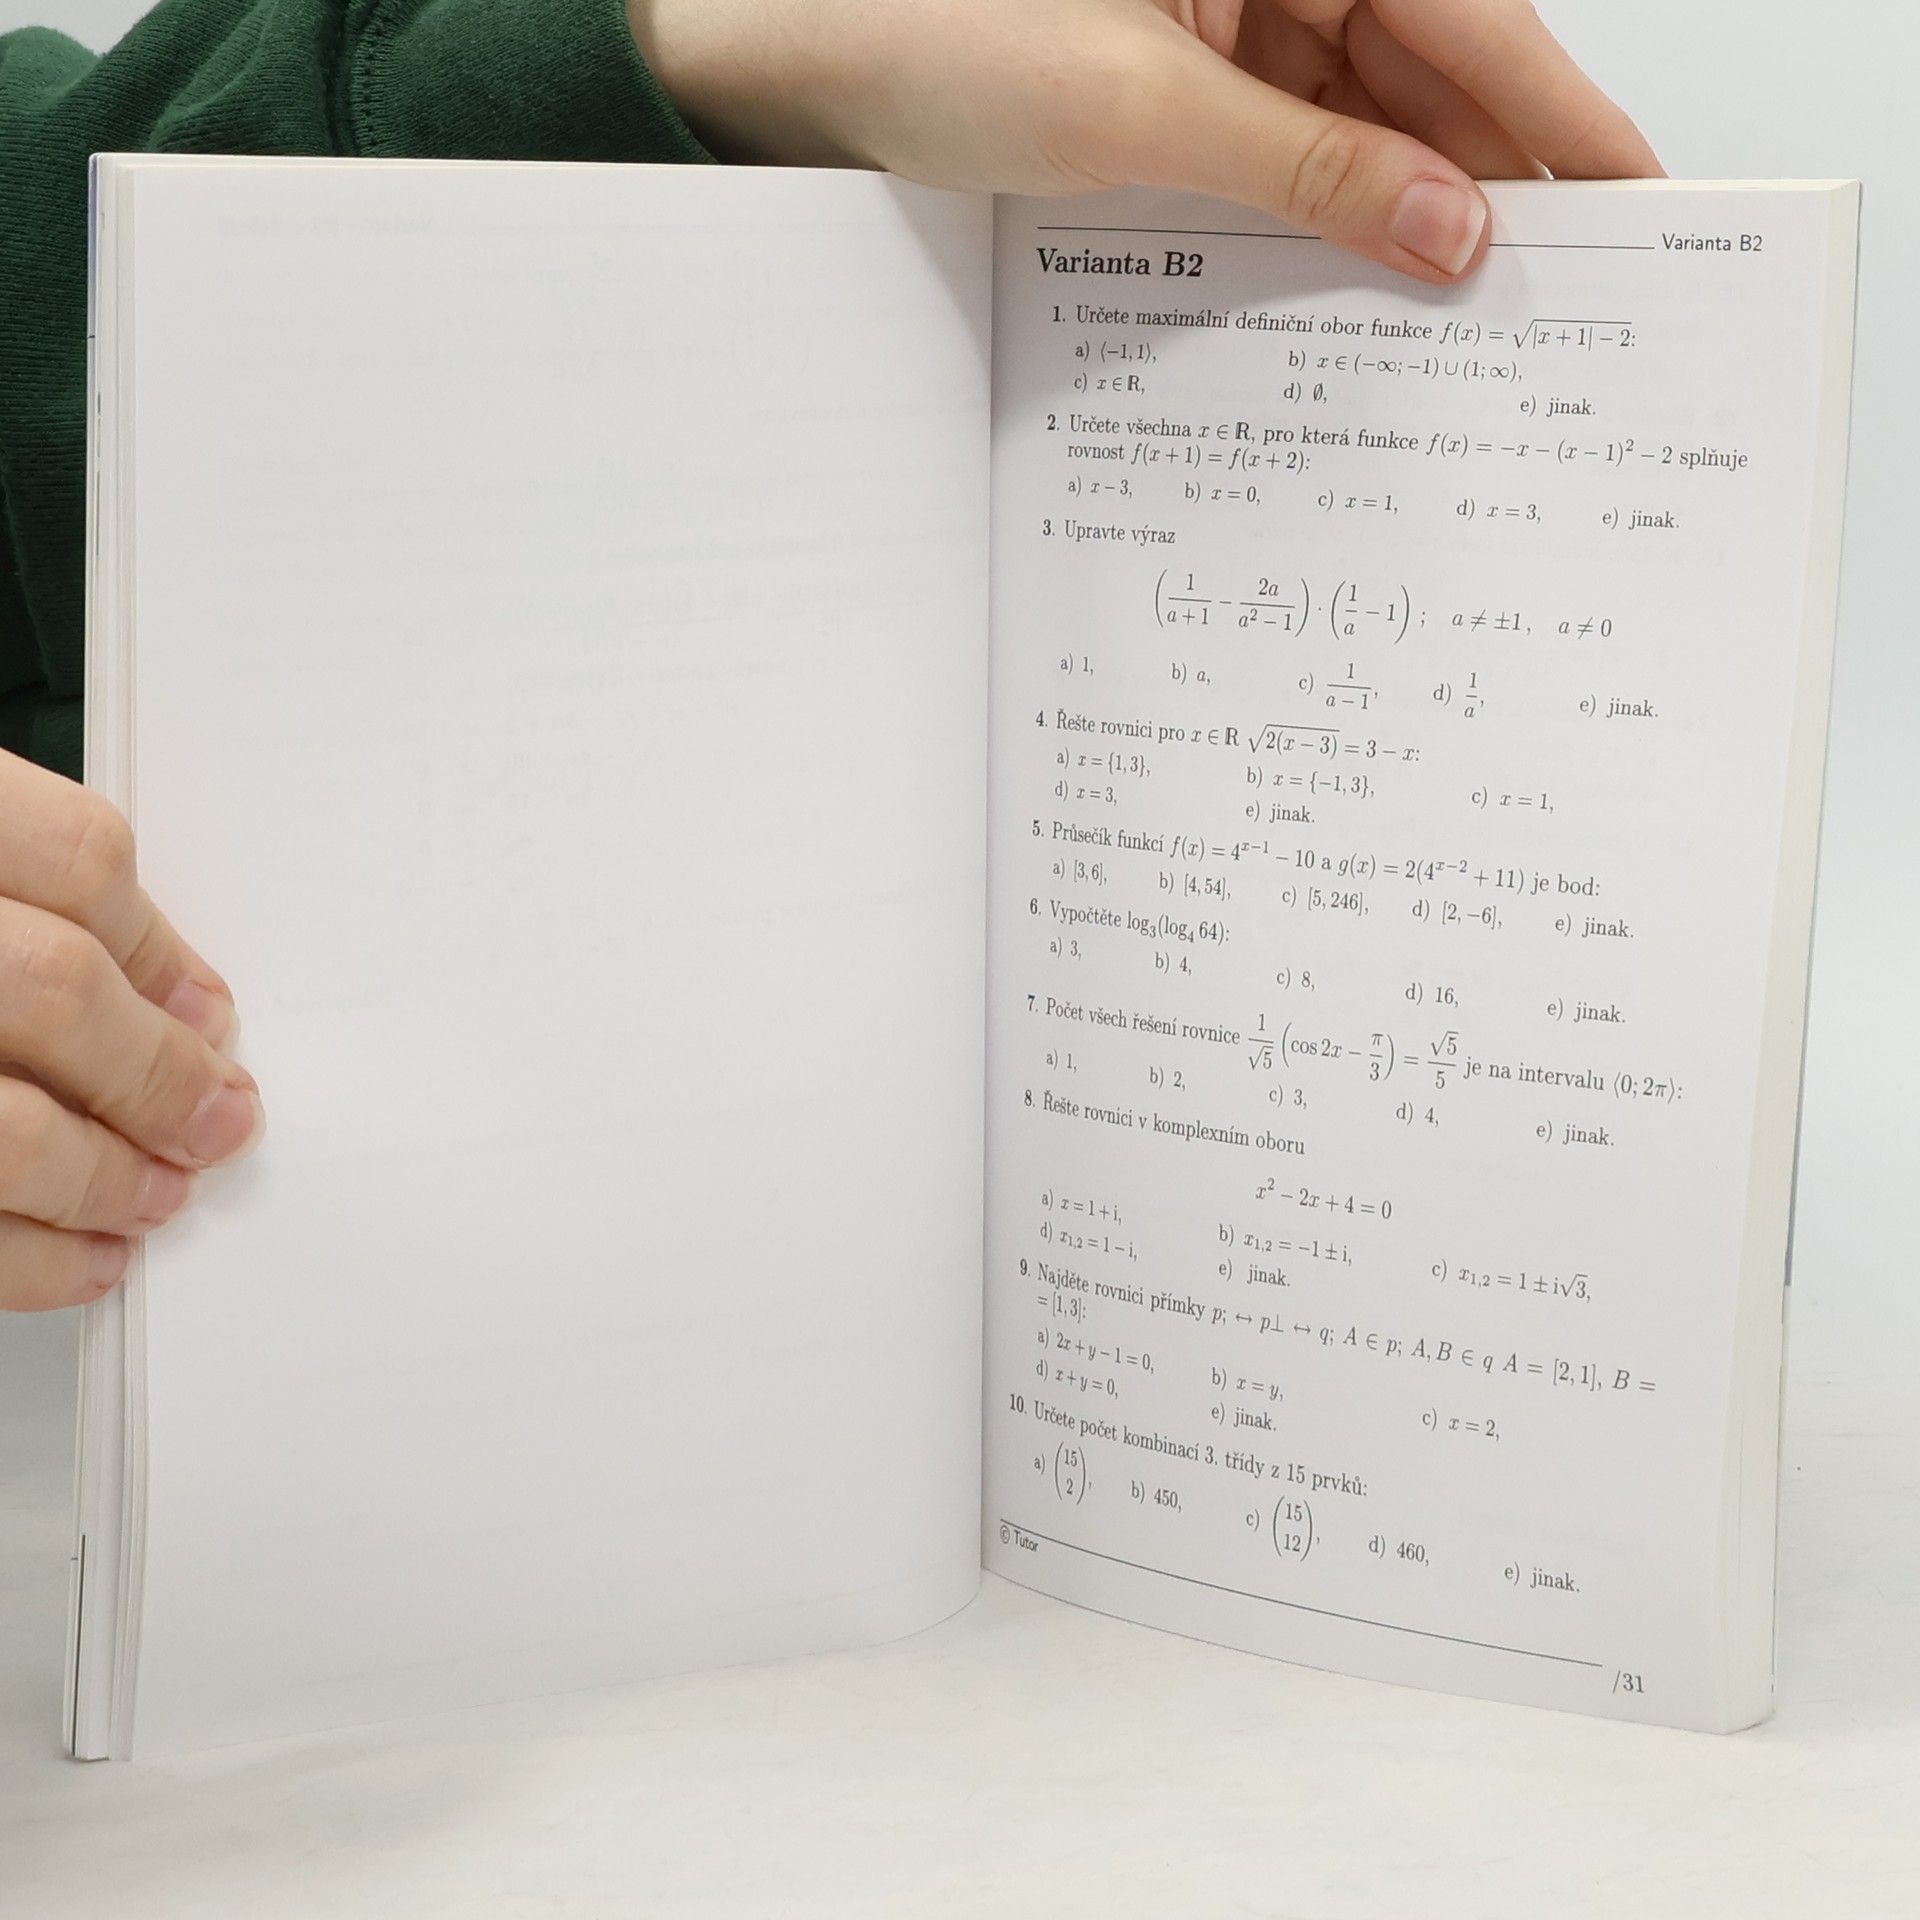 Varianta B2
Varianta B2
1. Určete maximální definiční obor funkce f(x) = √(|x + 1| − 2):
a) ⟨−1, 1⟩, b) x ∈ (−∞; −1) ∪ (1; ∞),
c) x ∈ ℝ, d) ∅, e) jinak.
2. Určete všechna x ∈ ℝ, pro která funkce f(x) = −x − (x − 1)² − 2 splňuje
rovnost f(x + 1) = f(x + 2):
a) x − 3, b) x = 0, c) x = 1, d) x = 3, e) jinak.
3. Upravte výraz
(1/(a + 1) − 2a/(a² − 1)) · (1/a − 1) ; a ≠ ±1, a ≠ 0
a) 1, b) a, c) 1/(a − 1), d) 1/a, e) jinak.
4. Řešte rovnici pro x ∈ ℝ √(2(x − 3)) = 3 − x:
a) x = {1, 3}, b) x = {−1, 3}, c) x = 1,
d) x = 3, e) jinak.
5. Průsečík funkcí f(x) = 4^(x−1) − 10 a g(x) = 2(4^(x−2) + 11) je bod:
a) [3, 6], b) [4, 54], c) [5, 246], d) [2, −6], e) jinak.
6. Vypočtěte log₃(log₄ 64):
a) 3, b) 4, c) 8, d) 16, e) jinak.
7. Počet všech řešení rovnice 1/√5 (cos 2x − π/3) = √5/5 je na intervalu ⟨0; 2π⟩:
a) 1, b) 2, c) 3, d) 4, e) jinak.
8. Řešte rovnici v komplexním oboru
x² − 2x + 4 = 0
a) x = 1 + i, b) x₁,₂ = −1 ± i, c) x₁,₂ = 1 ± i√3,
d) x₁,₂ = 1 − i, e) jinak.
9. Najděte rovnici přímky p; ↔ p⊥ ↔ q; A ∈ p; A, B ∈ q A = [2, 1], B =
= [1, 3]:
a) 2x + y − 1 = 0, b) x = y, c) x = 2,
d) x + y = 0, e) jinak.
10. Určete počet kombinací 3. třídy z 15 prvků:
a) (15 2), b) 450, c) (15 12), d) 460, e) jinak.
© Tutor
/31